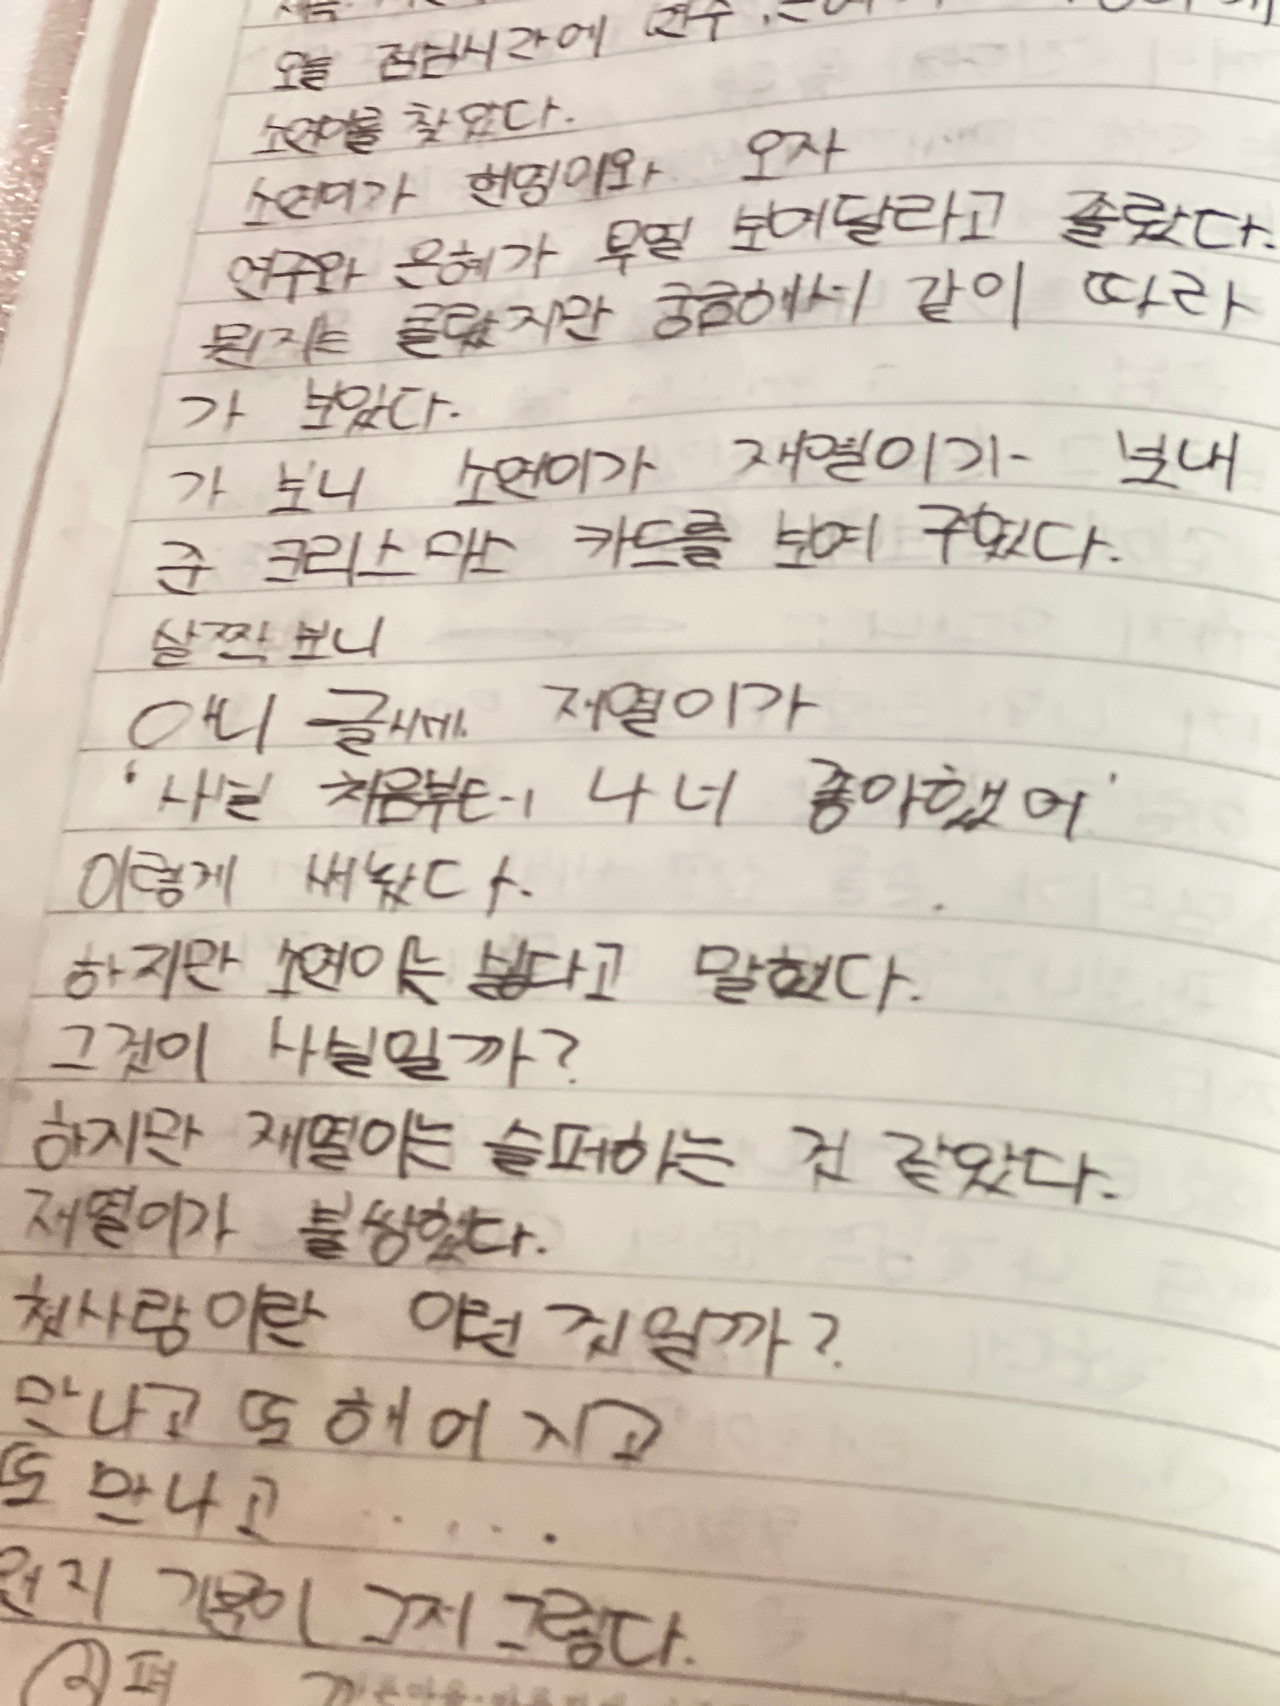 오늘 점심시간에 연수
소연이를 찾았다.
소연이가 현명이와 오자
연수와 은혜가 무얼 보여달라고 졸랐다.
뭔지는 몰랐지만 궁금해서 같이 따라
가 보았다.
가 보니 소연이가 재열이가 보내
준 크리스마스 카드를 보여 주었다.
살짝 보니
아니 글쎄 재열이가
'사실 처음부터 나 너 좋아했어'
이렇게 써놨다.
하지만 소연이는 싫다고 말했다.
그것이 사실일까?
하지만 재열이는 슬퍼하는 것 같았다.
재열이가 불쌍했다.
첫사랑이란 이런 것일까?
만나고 또 헤어 지고
또 만나고 .....
왠지 기분이 그저 그렇다.
2편